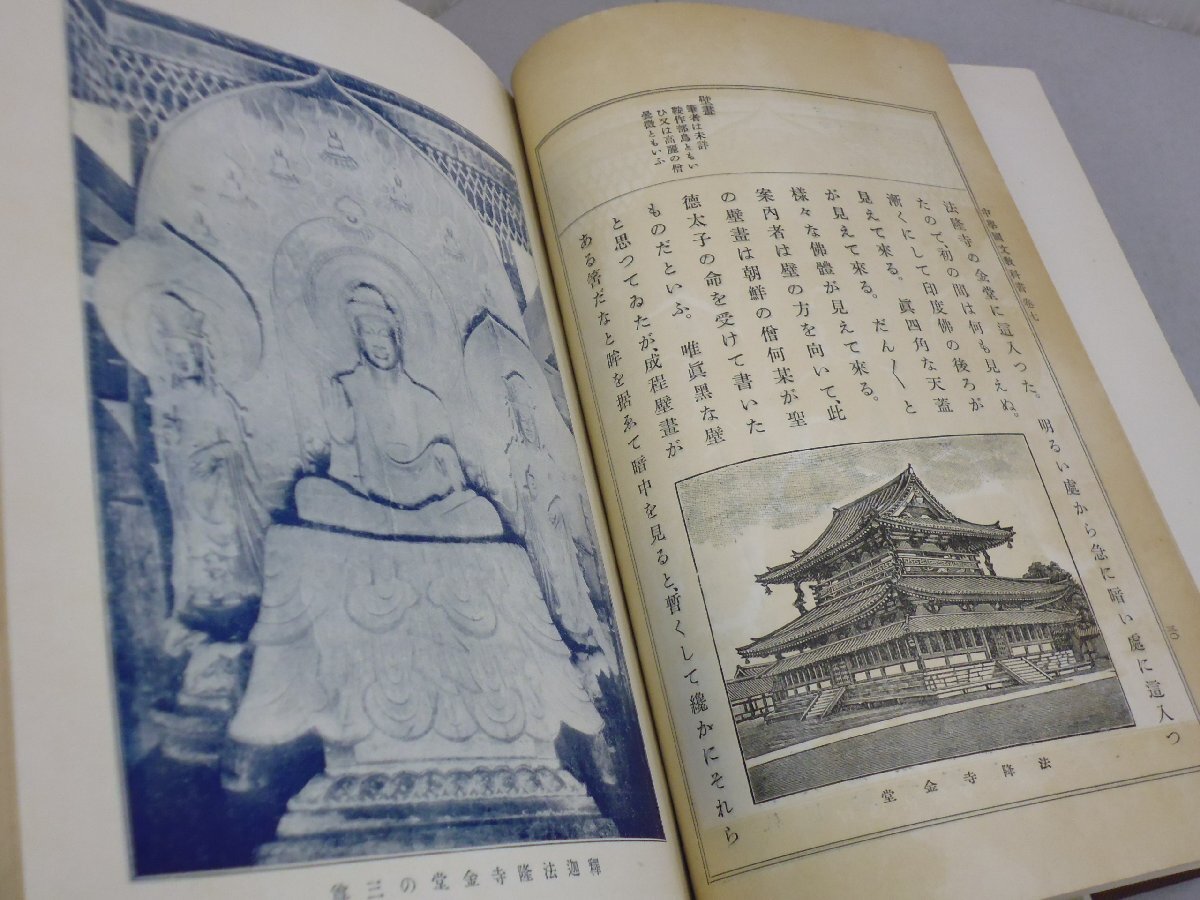 中學國文敎科書 卷七
壁畫
筆者は未詳
鞍作部鳥ともい
ひ又は高麗の僧
曇徵ともいふ
法隆寺の金堂に這入つた。 明るい處から急に暗い處に這入つ
たので、初の間は何も見えぬ。
漸くにして印度佛の後ろが
見えて來る。 眞四角な天蓋
が見えて來る。 だん〱と
樣々な佛體が見えて來る。
案內者は壁の方を向いて、此
の壁畫は朝鮮の僧何某が聖
德太子の命を受けて書いた
ものだといふ。 唯眞黑な壁
と思つてゐたが、成程壁畫が
ある筈だなと眸を据ゑて暗中を見ると、暫くして纔かにそれら
法隆寺金堂
釋迦法隆寺金堂の三尊